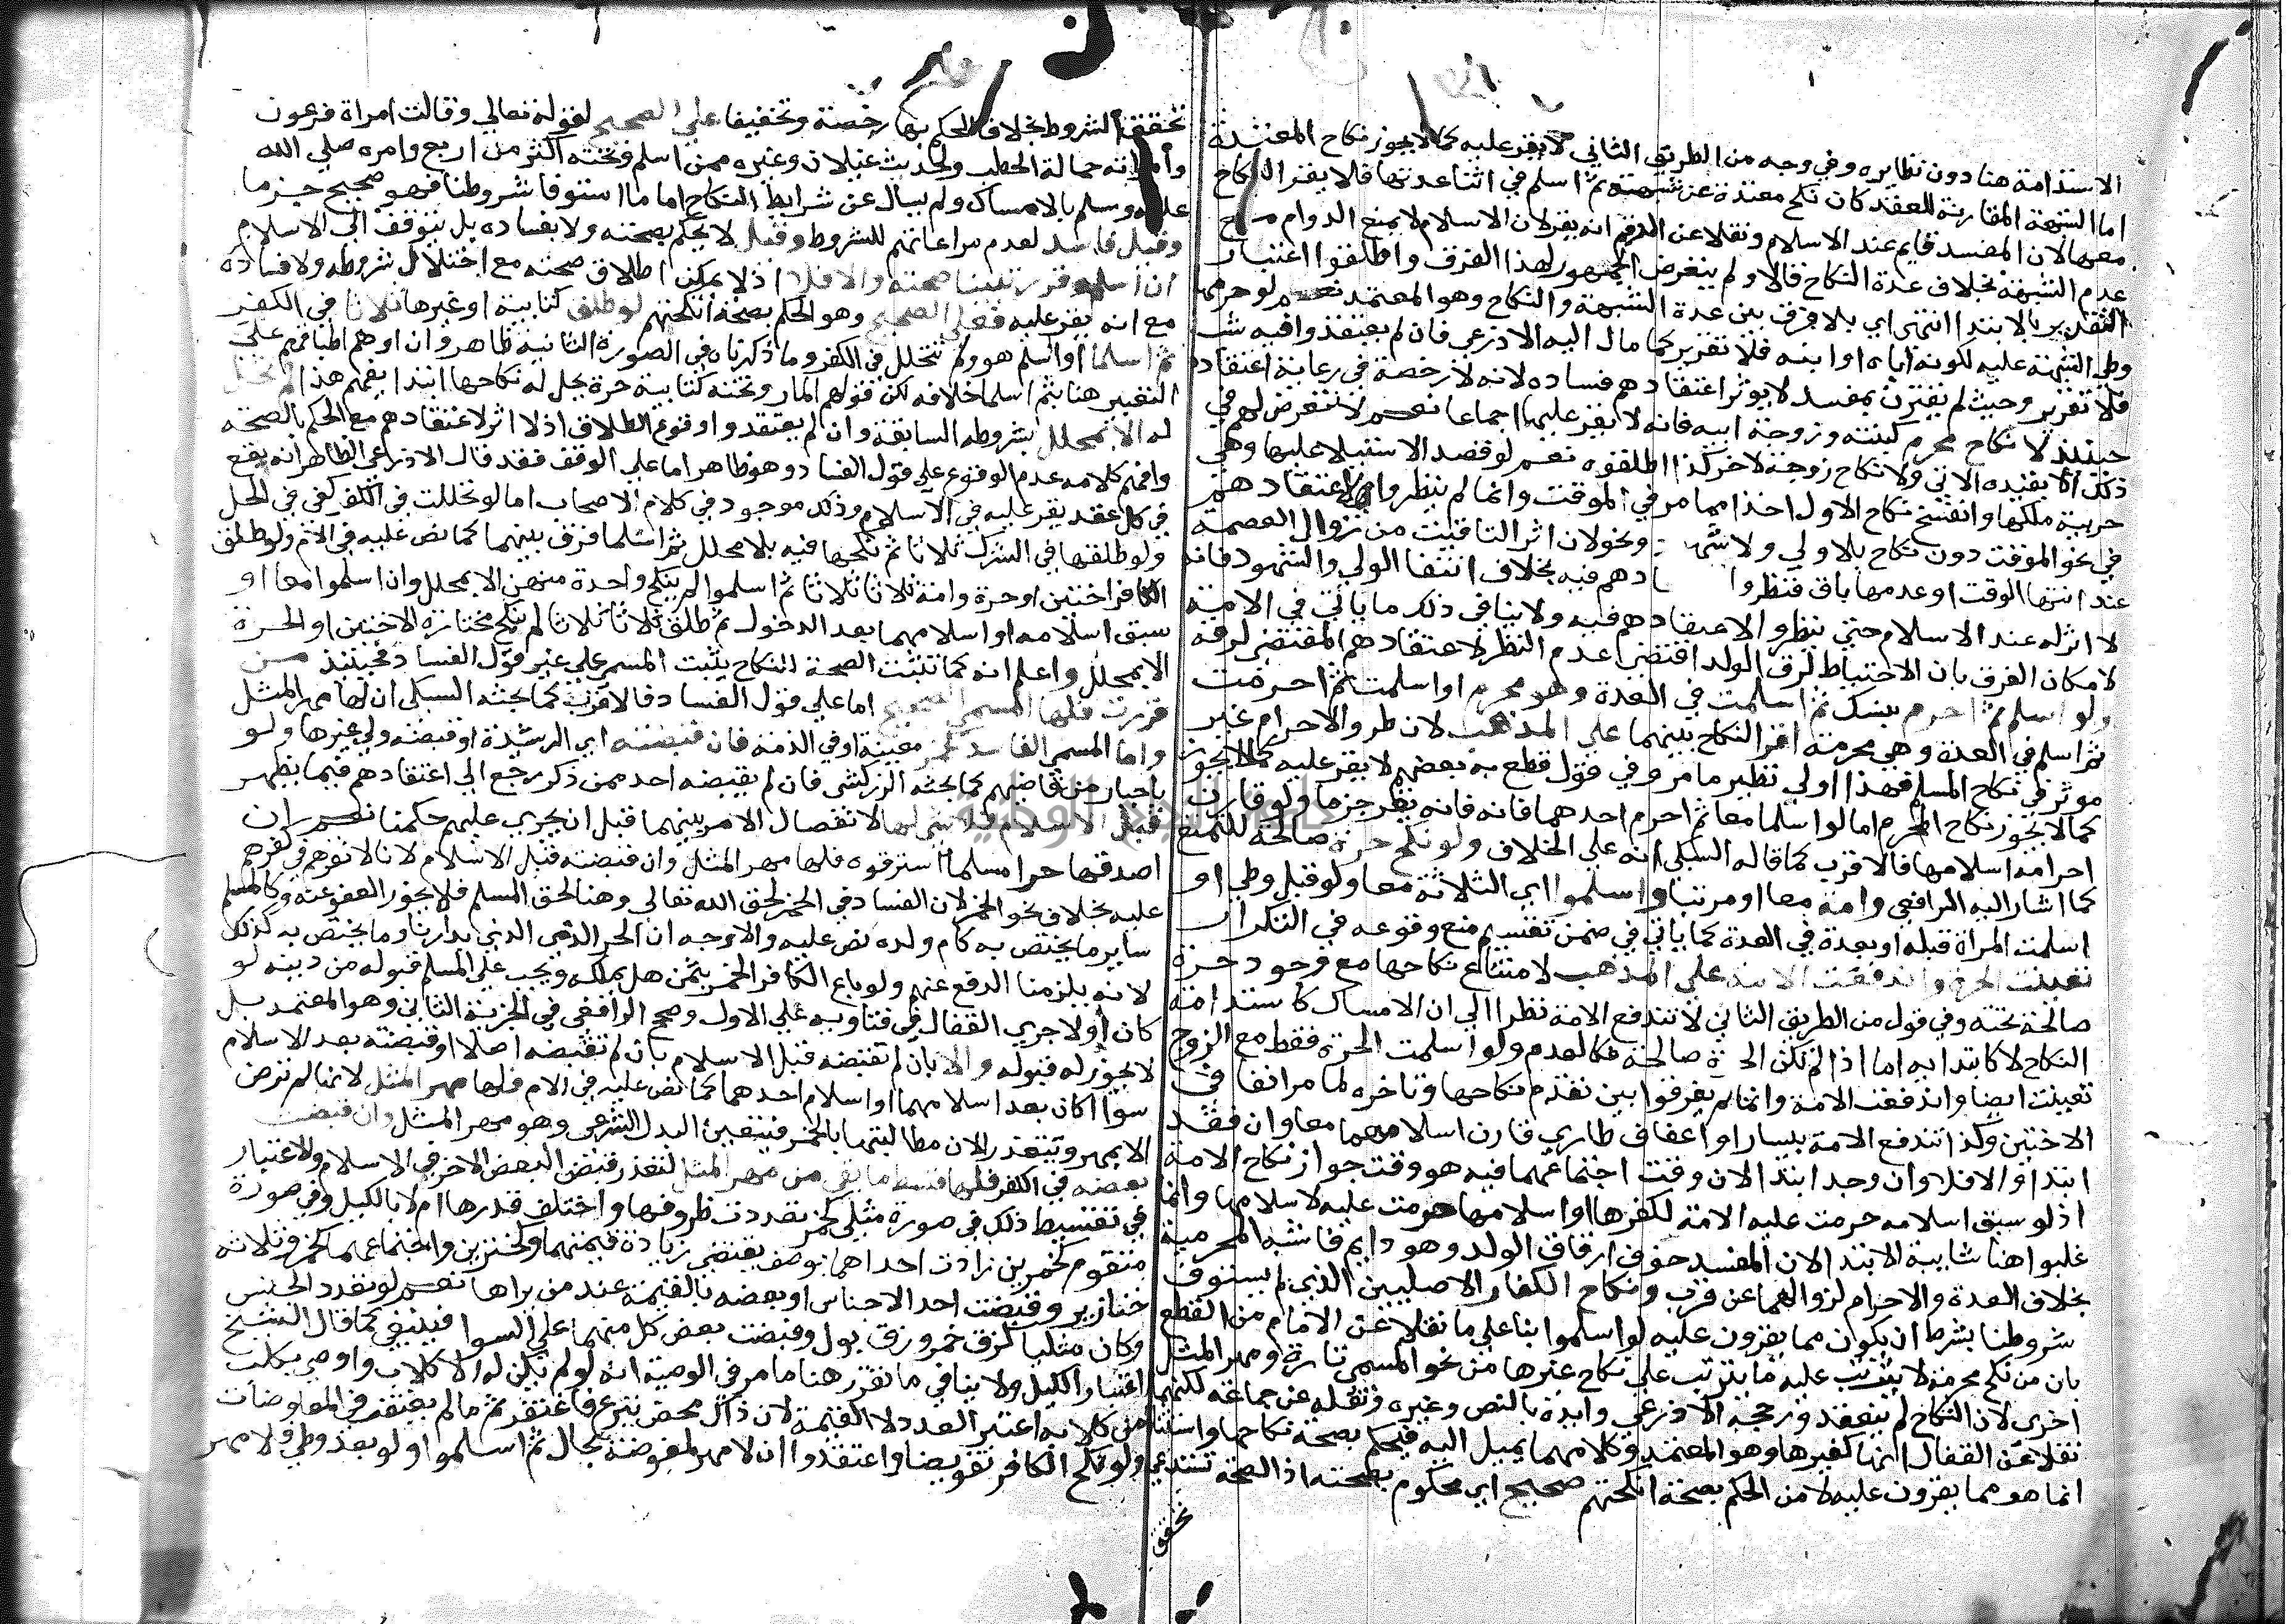 الاستدامة هنا دون نظايره وفي وجه من الطريق الثاني لا يقر عليه كما لا يجوز نكاح المعتدة
اما الشبهة المقارنة للعقد كان نكح معتدة عن شبهة ثم اسلم في اثنا عدتها فلا يقر النكاح
معها لان المفسد قايم عند الاسلام ونقلا عن الرقم انه يقر لان الاسلام لا يمنع الدوام مع
عدم الشبهة بخلاف عدة النكاح قالا ولم يتعرض الجمهور لهذا الفرق واطلقوا اعتبار
التقدير بالابتدا انتهى اي بلا فرق بين عدة الشبهة والنكاح وهو المعتمد نعم لو حرمها
وطي الشبهة عليه لكونه اباه او ابنه فلا تقرير كما مال اليه الاذرعي فان لم يعتقدوا فيه شيا
فلا تقرير وحيث لم يقترن بمفسد لا يوثر اعتقادهم فساده لانه لا رخصة في رعاية اعتقاد
حينئذ لا نكاح محرم كبنته وزوجة ابيه فانه لا يقر عليها اجماعا نعم لا نتعرض لهم في
ذلك الا بقيده الاتي ولا نكاح زوجة لاخر كذا اطلقوه نعم لو قصد الاستيلا عليها وهي
حربية ملكها وانفسخ نكاح الاول اخذا مما مر في الموقت وانما لم ينظروا لاعتقادهم
في نحو الموقت دون نكاح بلا ولي ولا شهود ونحو لان اثر التاقيت من زوال العصمة
عند انتها الوقت او عدمها باق فنظروا لاعتقادهم فيه بخلاف انتفا الولي والشهود فانه
لا اثر له عند الاسلام حتى ينظروا لاعتقادهم فيه ولا ينافي ذلك ما ياتي في الامة
لامكان الفرق بان الاحتياط لرق الولد اقتضى عدم النظر لاعتقادهم المقتضي لرقه
ولو اسلم ثم احرم بنسك ثم اسلمت في العدة وهو محرم او اسلمت ثم احرمت
ثم اسلم في العدة وهي محرمة اقر النكاح بينهما على المذهب لان طرو الاحرام غير
موثر في نكاح المسلم فهذا اولى نظير ما مر وفي قول قطع به بعضهم لا يقر عليه كما لا يجوز
كما لا يجوز نكاح المحرم اما لو اسلما معا ثم احرم احدهما فانه فانه يقر جزما ولو قارن
احرامه اسلامها فالاقرب كما قاله السبكي انه على الخلاف ولو نكح حرة صالحة للتمتع
كما اشار اليه الرافعي وامة معا او مرتبا واسلموا اي الثلاثة معا ولو قبل وطي او
اسلمت المراة قبله او بعدة في العدة كما ياتي في ضمن تقسيم منع وقوعه في التكرار
تعينت الحرة واندفعت الامة على المذهب لامتناع نكاحها مع وجود حرة
صالحة تحته وفي قول من الطريق الثاني لا تندفع الامة نظرا الى ان الامساك كاستدامة
النكاح لا كابتدايه اما اذا لم تكن الحرة صالحة فكالعدم ولو اسلمت الحرة فقط مع الزوج
تعينت ايضا واندفعت الامة وانما لم يفرقوا بين تقدم نكاحها وتاخره لما مر انفا في
الاختين وكذا تندفع الامة بيسار او اعفاف طاري قارن اسلامهما معا وان فقد
ابتدا والا فلا وان وجد ابتدا لان وقت اجتماعهما فيه هو وقت جواز نكاح الامة
اذ لو سبق اسلامه حرمت عليه الامة لكفرها او اسلامها حرمت عليه لاسلامها وانما
غلبوا هنا شايبة الابتدا لان المفسد خوف ارقاق الولد وهو دايم فاشبه المحرمية
بخلاف العدة والاحرام لزوالهما عن قرب ونكاح الكفار الاصليين الذي لم يستوف
شروطنا بشرط ان يكون مما يقرون عليه لو اسلموا بنا على ما نقلا عن الامام من القطع
بان من نكح محرمه لا يترتب عليه ما يترتب على نكاح غيرها من نحو المسمى تارة ومهر المثل
اخرى لان النكاح لم ينعقد ورجحه الاذرعي وايده بالنص وغيره ونقله عن جماعة لكنهما
نقلا عن القفال انها كغيرها وهو المعتمد وكلامهما يميل اليه فيحكم بصحة نكاحها واستثنا
انما هو مما يقرون عليه لا من الحكم بصحة انكحتهم صحيح اي محكوم بصحته اذ الصحة تستدعي
تحقق
تحقق الشروط بخلاف الحكم بها رخصة وتخفيفا على الصحيح لقوله تعالى وقالت امراة فرعون
وامراته حمالة الحطب ولحديث غيلان وغيره ممن اسلم وتحته اكثر من اربع وامره صلى الله
عليه وسلم بالامساك ولم يسال عن شرايط النكاح اما ما استوفا شروطنا فهو صحيح جزما
وقيل فاسد لعدم مراعاتهم للشروط وقيل لا يحكم بصحته ولا بفساده بل يتوقف الى الاسلام
ان اسلم وقرر تبينا صحته والا فلا اذ لا يمكن اطلاق صحته مع اختلال شروطه ولا فساده
مع انه يقر عليه فعلى الصحيح وهو الحكم بصحة انكحتهم لو طلق كتابية او غيرها ثلاثا في الكفر
ثم اسلما او اسلم هو ولم تتحلل في الكفر وما ذكرناه في الصورة الثانية ظاهر وان اوهم اطباقهم على
التعبير هنا بثم اسلما خلافه لكن قولهم المار وتحته كتابية حرة يحل له نكاحها ابتدا يفهم هذا لم تحل
له الا بمحلل بشروطه السابقة وان لم يعتقدوا وقوع الطلاق اذ لا اثر لاعتقادهم مع الحكم بالصحة
وافهم كلامه عدم الوقوع على قول الفساد وهو ظاهر اما على الوقف فقد قال الاذرعي الظاهر انه يقع
في كل عقد يقر عليه في الاسلام وذلك موجود في كلام الاصحاب اما لو تحللت في الكفر كفى في الحل
ولو طلقها في الشرك ثلاثا ثم نكحها فيه بلا محلل ثم اسلما فرق بينهما كما نص عليه في الام ولو طلق
الكافر اختين او حرة وامة ثلاثا ثلاثا ثم اسلموا لم ينكح واحدة منهن الا بمحلل وان اسلموا معا او
سبق اسلامه او اسلامهما بعد الدخول ثم طلق ثلاثا ثلاثا لم ينكح مختارة الاختين او الحرة
الا بمحلل واعلم انه كما تثبت الصحة للنكاح يثبت المسمى على غير قول الفساد فحينئذ من
قررت فلها المسمى الصحيح اما على قول الفساد فالاقرب كما بحثه السبكي ان لها مهر المثل
واما المسمى الفاسد كخمر معينة او في الذمة فان قبضته اي الرشيدة او قبضه ولي غيرها ولو
باجبار من قاضيهم كما بحثه الزركشي فان لم يقبضه احد ممن ذكر رجع الى اعتقادهم فيما يظهر
قبل الاسلام فلا شي لها لانفصال الامر بينهما قبل ان يجري عليهم حكمنا نعم ان
اصدقها حرا مسلما استرقوه فلها مهر المثل وان قبضته قبل الاسلام لانا لا نقرهم في كفرهم
عليه بخلاف نحو الخمر لان الفساد في الخمر لحق الله تعالى وهنا لحق المسلم فلا يجوز العفو عنه وكالمسلم
ساير ما يختص به كام ولده نص عليه والاوجه ان الحر الذمي الذي بدارنا وما يختص به كذلك
لانه يلزمنا الدفع عنهم ولو باع الكافر الخمر بثمن هل يملكه ويجب على المسلم قبوله من دينه لو
كان او لا جرى القفال في فتاويه على الاول وصحح الرافعي في الجزية الثاني وهو المعتمد بل
لا يجوز له قبوله والا بان لم تقبضه قبل الاسلام بان لم تقبضه اصلا او قبضته بعد الاسلام
سوا اكان بعد اسلامهما او اسلام احدهما كما نص عليه في الام فلها مهر المثل لانها لم ترض
الا بمهر وتتعذر الان مطالبتها بالخمر فيتعين البدل الشرعي وهو مهر المثل وان قبضت
بعضه في الكفر فلها قسط ما بقي من مهر المثل لتعذر قبض البعض الاخر في الاسلام والاعتبار
في تقسيط ذلك في صورة مثلي كخمر تعددت ظروفها واختلف قدرها ام لا بالكيل وفي صورة
متقوم كخمرين زادت احداهما بوصف يقتضي زيادة قيمتهما وكخنزيرين واجتماعهما كخمر وثلاثة
خنازير وقبضت احد الاجناس او بعضه بالقيمة عند من يراها نعم لو تعدد الجنس
وكان مثليا كزق خمر وزق بول وقبضت بعض كل منهما على السوا فينبغي كما قال الشيخ
اعتبار الكيل ولا ينافي ما تقرر هنا ما مر في الوصية انه لو لم يكن له الا كلاب واوصى بكلب
من كلابه اعتبر العدد لا القيمة لان ذاك محض تبرع فاغتفر ثم ما لم يغتفر في المعاوضات
ولو نكح الكافر تفويضا واعتقدوا ان لا مهر لمفوضة بحال ثم اسلموا ولو بعد وطي فلا مهر